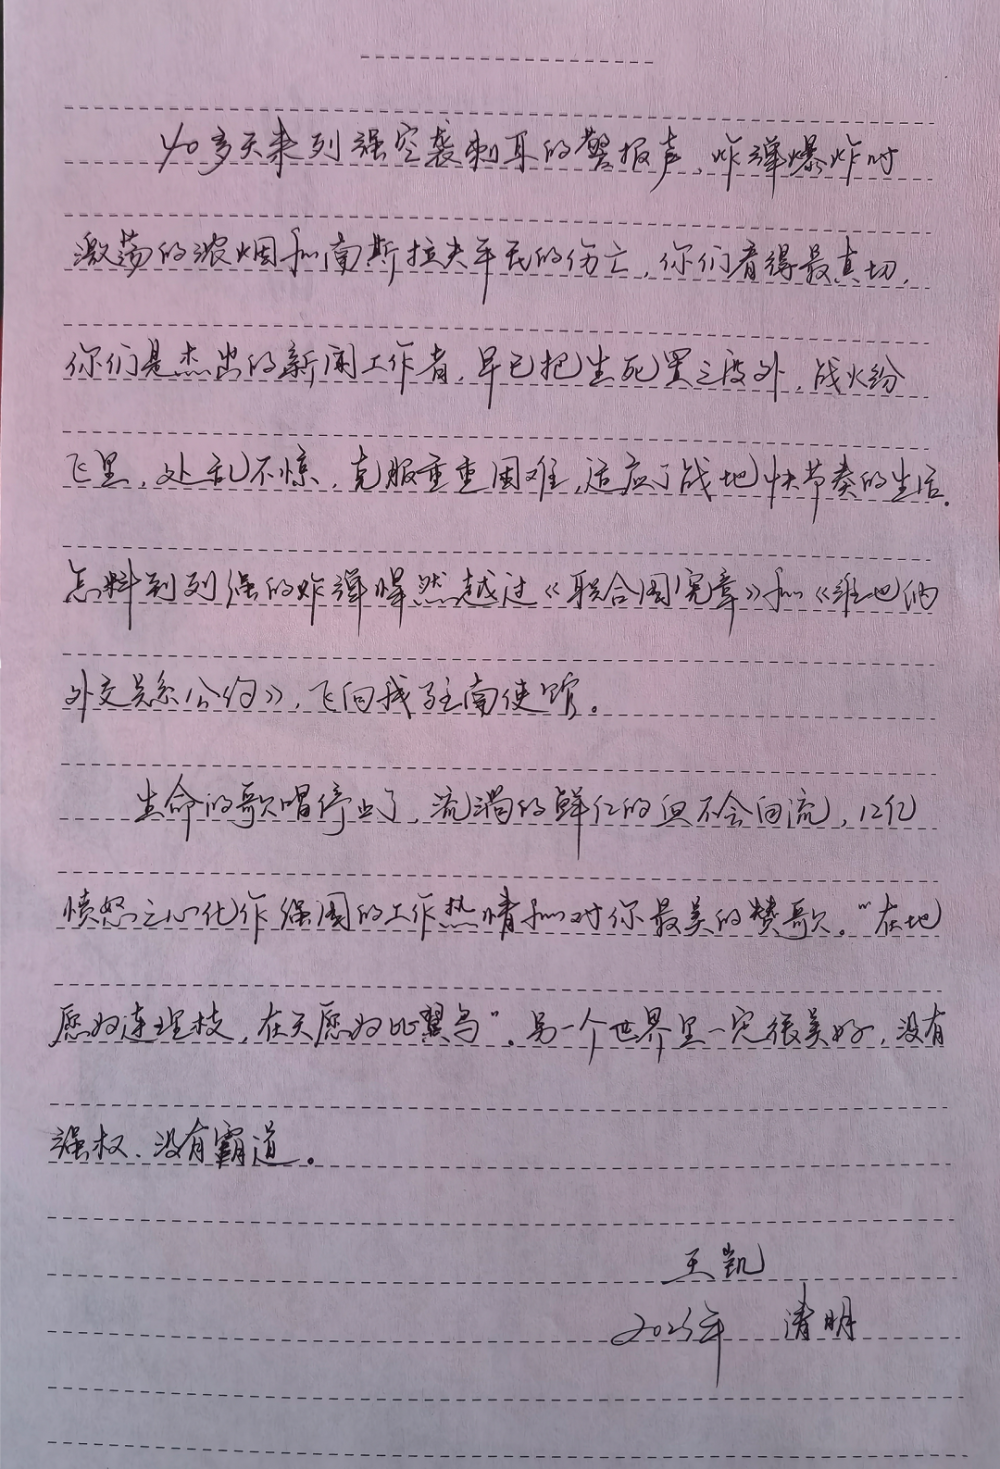 40多天来列强空袭刺耳的警报声、炸弹爆炸时
激荡的浓烟和南斯拉夫平民的伤亡，你们看得最真切，
你们是杰出的新闻工作者，早已把生死置之度外，战火纷
飞里，处乱不惊，克服重重困难，适应了战地快节奏的生活。
怎料到列强的炸弹悍然越过《联合国宪章》和《维也纳
外交关系公约》，飞向我驻南使馆。
生命的歌唱停止了，流淌的鲜红的血不会回流，12亿
愤怒之心化作强国的工作热情和对你最美的赞歌。"在地
愿为连理枝，在天愿为比翼鸟"。另一个世界里一定很美好，没有
强权、没有霸道。
王凯
年 清明